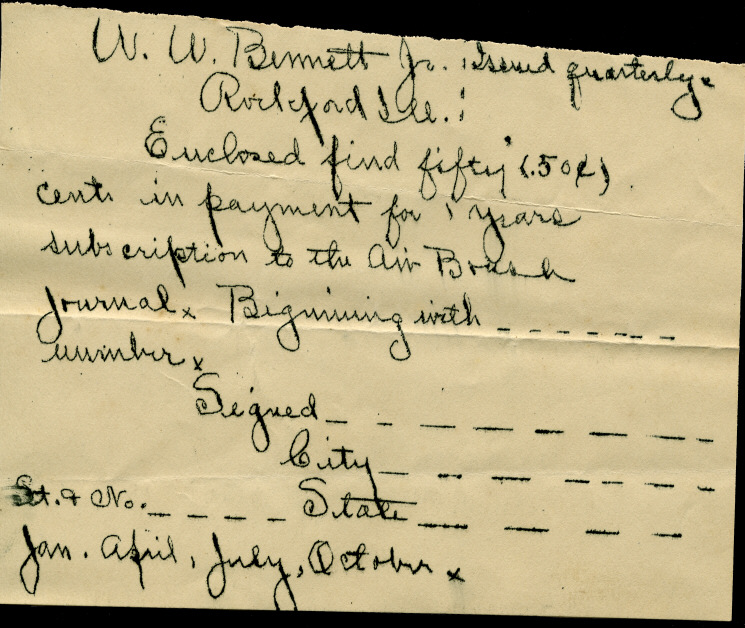 W. W. Bennett Jr. Issued quarterly.
Rockford Ill.
Enclosed find fifty (.50¢)
cents in payment for 1 years
subscription to the Air Brush
Journal x Biginning with _ _ _ _ _ _
number x
Signed _ _ _ _ _ _ _ _
City _ _ _ _ _ _ _
St. & No. _ _ _ _ State _ _ _ _ _
Jan. April, July, October x